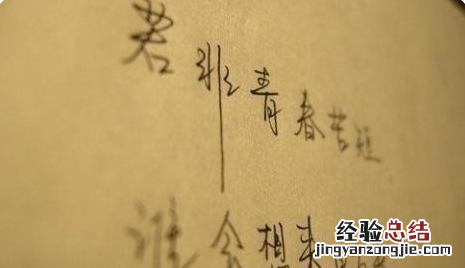 若非青春苦短
谁会想来
经验总结
jingyanzongjie.com